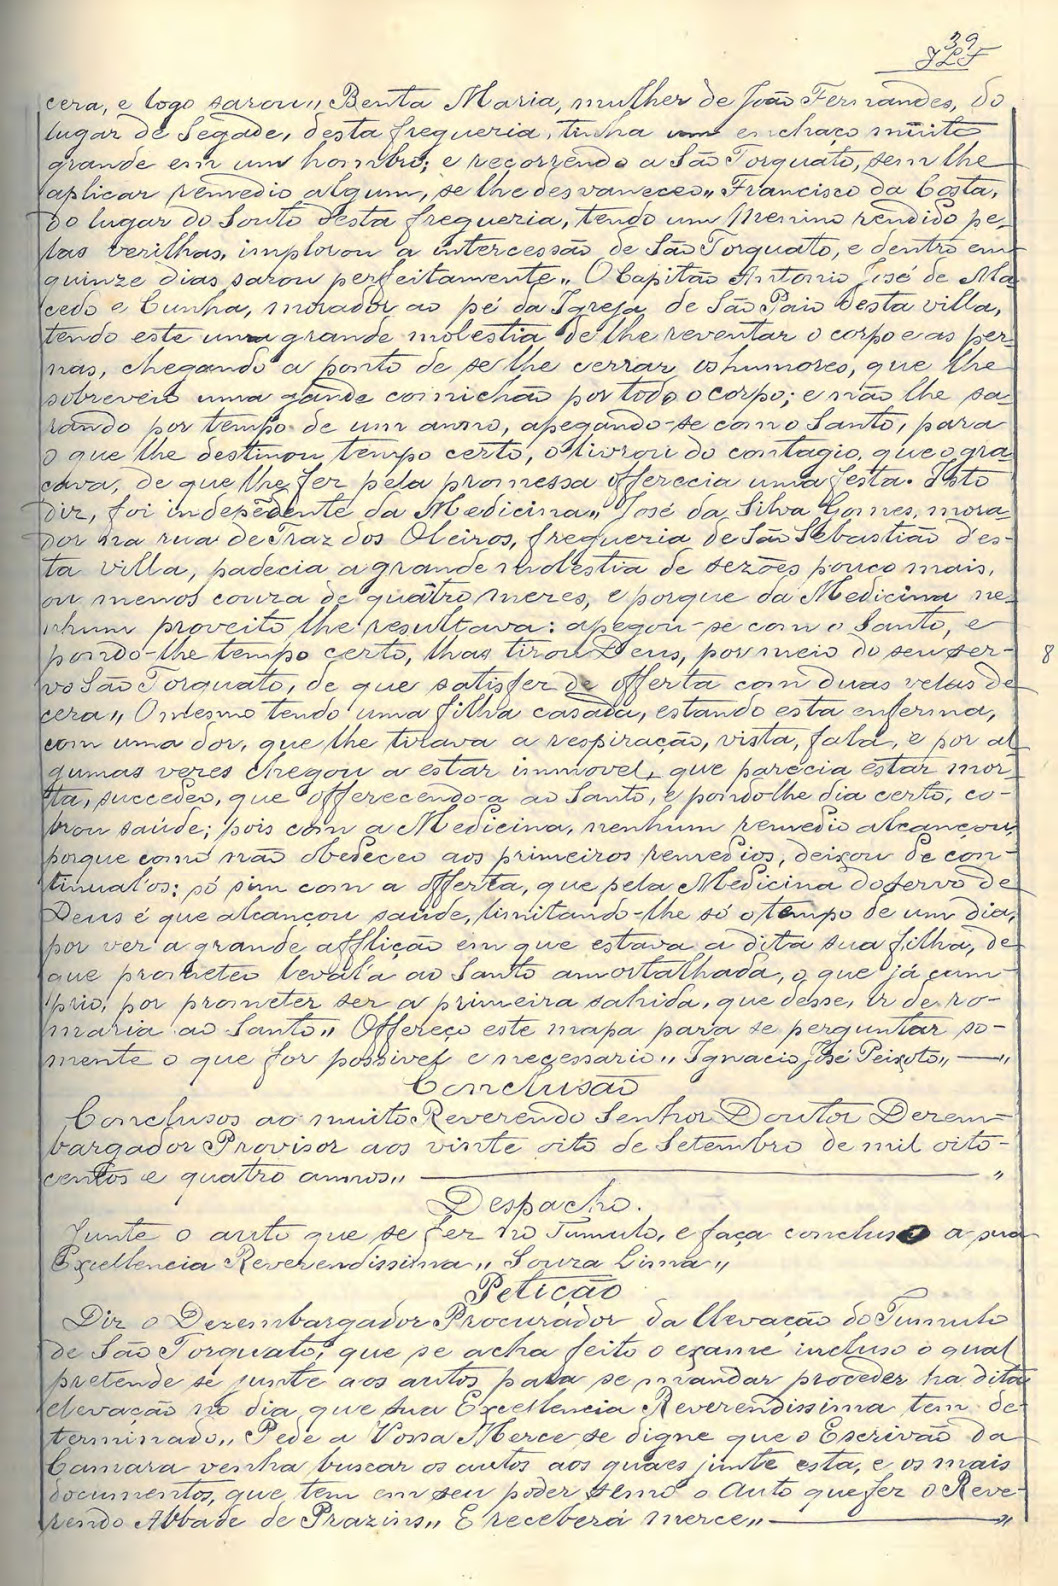 39
cera, e logo sarou,, Benta Maria, mulher de João Fernandes, do
lugar de Segade, desta freguezia, tinha um enchaço muito
grande em um hombro; e recorrendo a São Torquato, sem lhe
aplicar remedio algum, se lhe desvaneceo,, Francisco da Costa,
do lugar do Souto desta freguezia, tendo um menino rendido pe-
las verilhas, implorou a intercessão de São Torquato, e dentro em
quinze dias sarou perfeitamente,, O Capitão Antonio José de Ma-
cedo e Cunha, morador ao pé da Igreja de São Paio desta villa,
tendo este uma grande molestia de lhe reventar o corpo e as per-
nas, chegando a ponto de se lhe cerrar os humores, que lhe
sobreveio uma gande comichão por todo o corpo; e não lhe sa-
rando por tempo de um anno, apegando-se com o Santo, para
o que lhe destinou tempo certo, o livrou do contagio, que o gra-
cava, de que lhe fez pela promessa offerecia uma festa. Isto
diz, foi indepêdente da Medicina,, José da Silva Gomes, mora-
dor na rua de Traz dos Oleiros, freguezia de São Sebastião d'es-
ta villa, padecia a grande molestia de sezões pouco mais,
ou menos couza de quatro mezes, e porque da Medicina ne-
nhum proveito lhe resultava: apegou-se com o Santo, e
pondo-lhe tempo certo, lhas tirou Deus, por meio do seu ser-
vo São Torquato, de que satisfez de offerta com duas velas de
cera,, O mesmo tendo uma filha casada, estando esta enferma,
com uma dor, que lhe tirava a respiração, vista, fala, e por al-
gumas vezes chegou a estar immovel, que parecia estar mor-
ta, succedeo, que offerecendo-a ao Santo, e pondo-lhe dia certo, co-
brou saúde; pois com a Medicina, nenhum remedio alcançou,
porque como não obedeceo aos primeiros remedios, deixou de con-
tinual-os: só sim com a offerta, que pela Medicina do servo de
Deus é que alcançou saúde, limitando-lhe só o tempo de um dia,
por ver a grande afflição em que estava a dita sua filha, de
que prometeo leval-a ao Santo amortalhada, o que já cum-
prio, por prometer ser a primeira sahida, que desse, ir de ro-
maria ao Santo,, Offereço este mapa para se perguntar so-
mente o que for possivel e necessario,, Ignacio José Peixoto,,
Conclusão
Conclusos ao muito Reverendo Senhor Doutor Dezem-
bargador Provisor aos vinte oito de Setembro de mil oito-
centos e quatro annos,,
Despacho.
Junte o auto que se fez no Tumulo, e faça concluso a sua
Excellencia Reverendissima,, Souza Lima,,
Petição
Diz o Dezembargador Procurador da Elevação do Tumulo
de São Torquato, que se acha feito o exame incluso o qual
pretende se junte aos autos para se mandar proceder na dita
elevação no dia que sua Excellencia Reverendissima tem de-
terminado,, Pede a Vossa Merce se digne que o Escrivão da
Camara venha buscar os autos aos quaes junte esta, e os mais
documentos, que tem em seu poder o Auto que fez o Reve-
rendo Abbade de Prazins,, E receberá merce,,
8